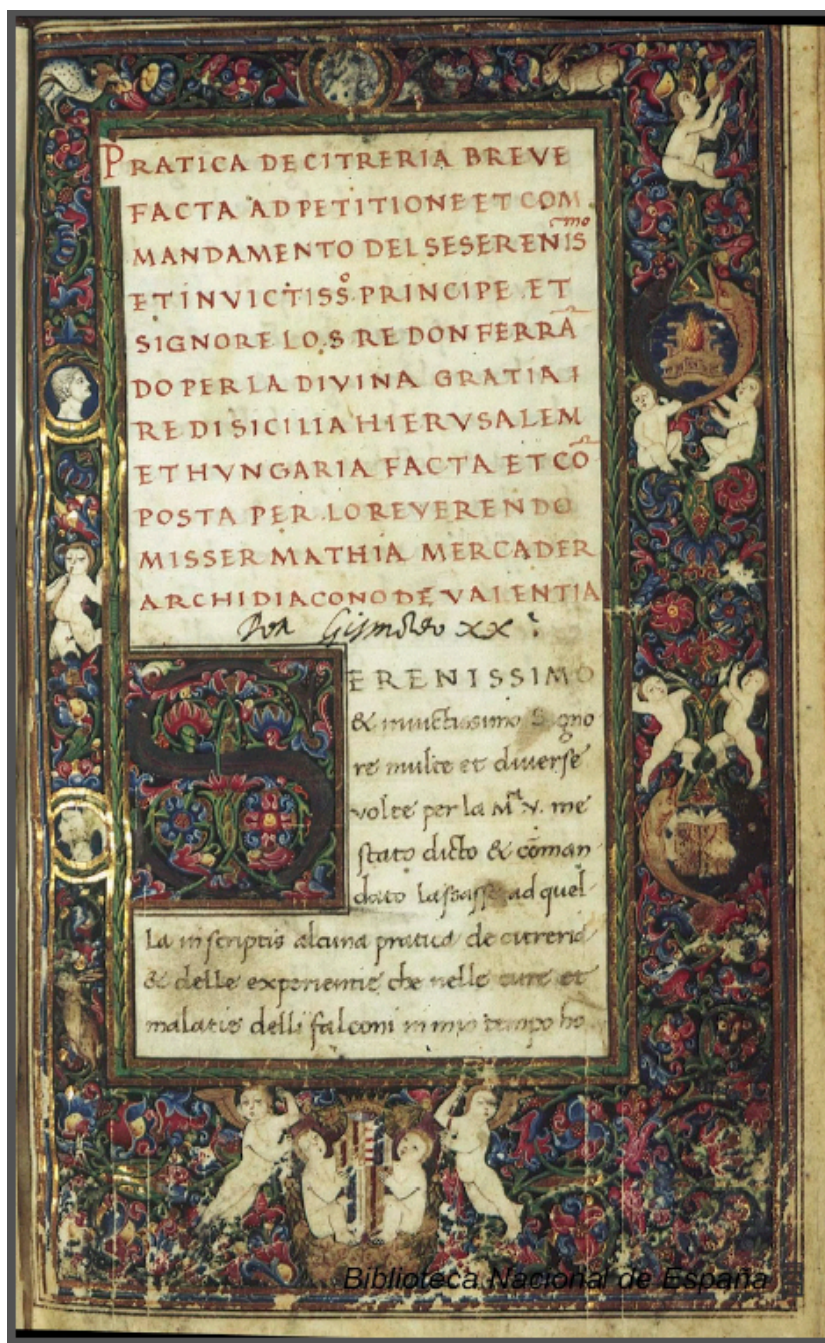 PRATICA DE CITRERIA BREVE
FACTA AD PETITIONE ET COM
MANDAMENTO DEL SESERENISmo
ET INVICTISSo. PRINCIPE ET
SIGNORE LO.S RE DON FERRĀ
DO PER LA DIVINA GRATIA I
RE DI SICILIA HIERVSALEM
ET HVNGARIA FACTA ET CŌ
POSTA PER. LO REVERENDO
MISSER MATHIA MERCADER
ARCHIDIACONO DE VALENTIA
SERENISSIMO
& inuictissimo Signo
re multe et diuerse
volte per la Mta v. me
stato dicto & cōman
dato lassasse ad quel
la in scriptis alcuna pratica de citreria
& delle experientie che nelle cure et
malatie delli falconi in mio tempo ho
Biblioteca Nacional de España